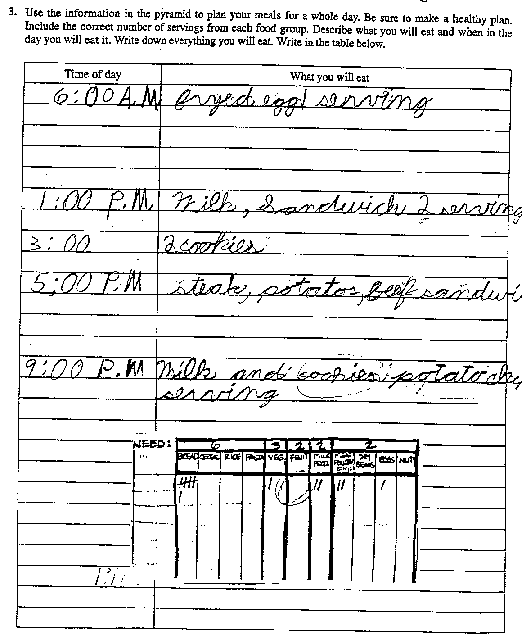 3. Use the information in the pyramid to plan your meals for a whole day. Be sure to make a healthy plan.
Include the correct number of servings from each food group. Describe what you will eat and when in the
day you will eat it. Write down everything you will eat. Write in the table below.
Time of day What you will eat
6:00 A.M fryed egg 1 serving
1:00 P.M Milk, Sandwich 2 serving
3:00 2 cookies
5:00 P.M steak, potatos, Beef sandwi
9:00 P.M Milk and cookies, potato
serving
NEED: 6 3 2 2 2
BREAD CEREAL RICE PASTA VEG. FRUIT MILK DRY BEANS EGGS NUTS